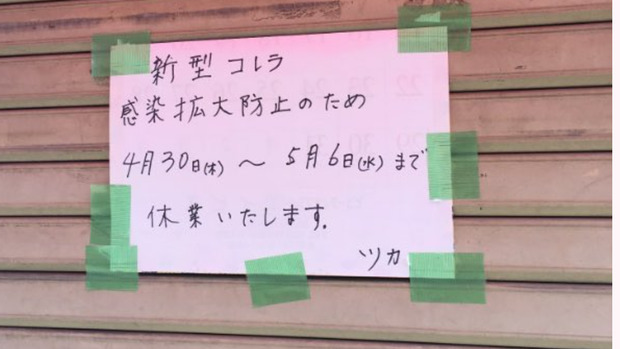 新型コレラ
感染拡大防止のため
4月30日(木)～5月6日(水)まで
休業いたします.
ツカ